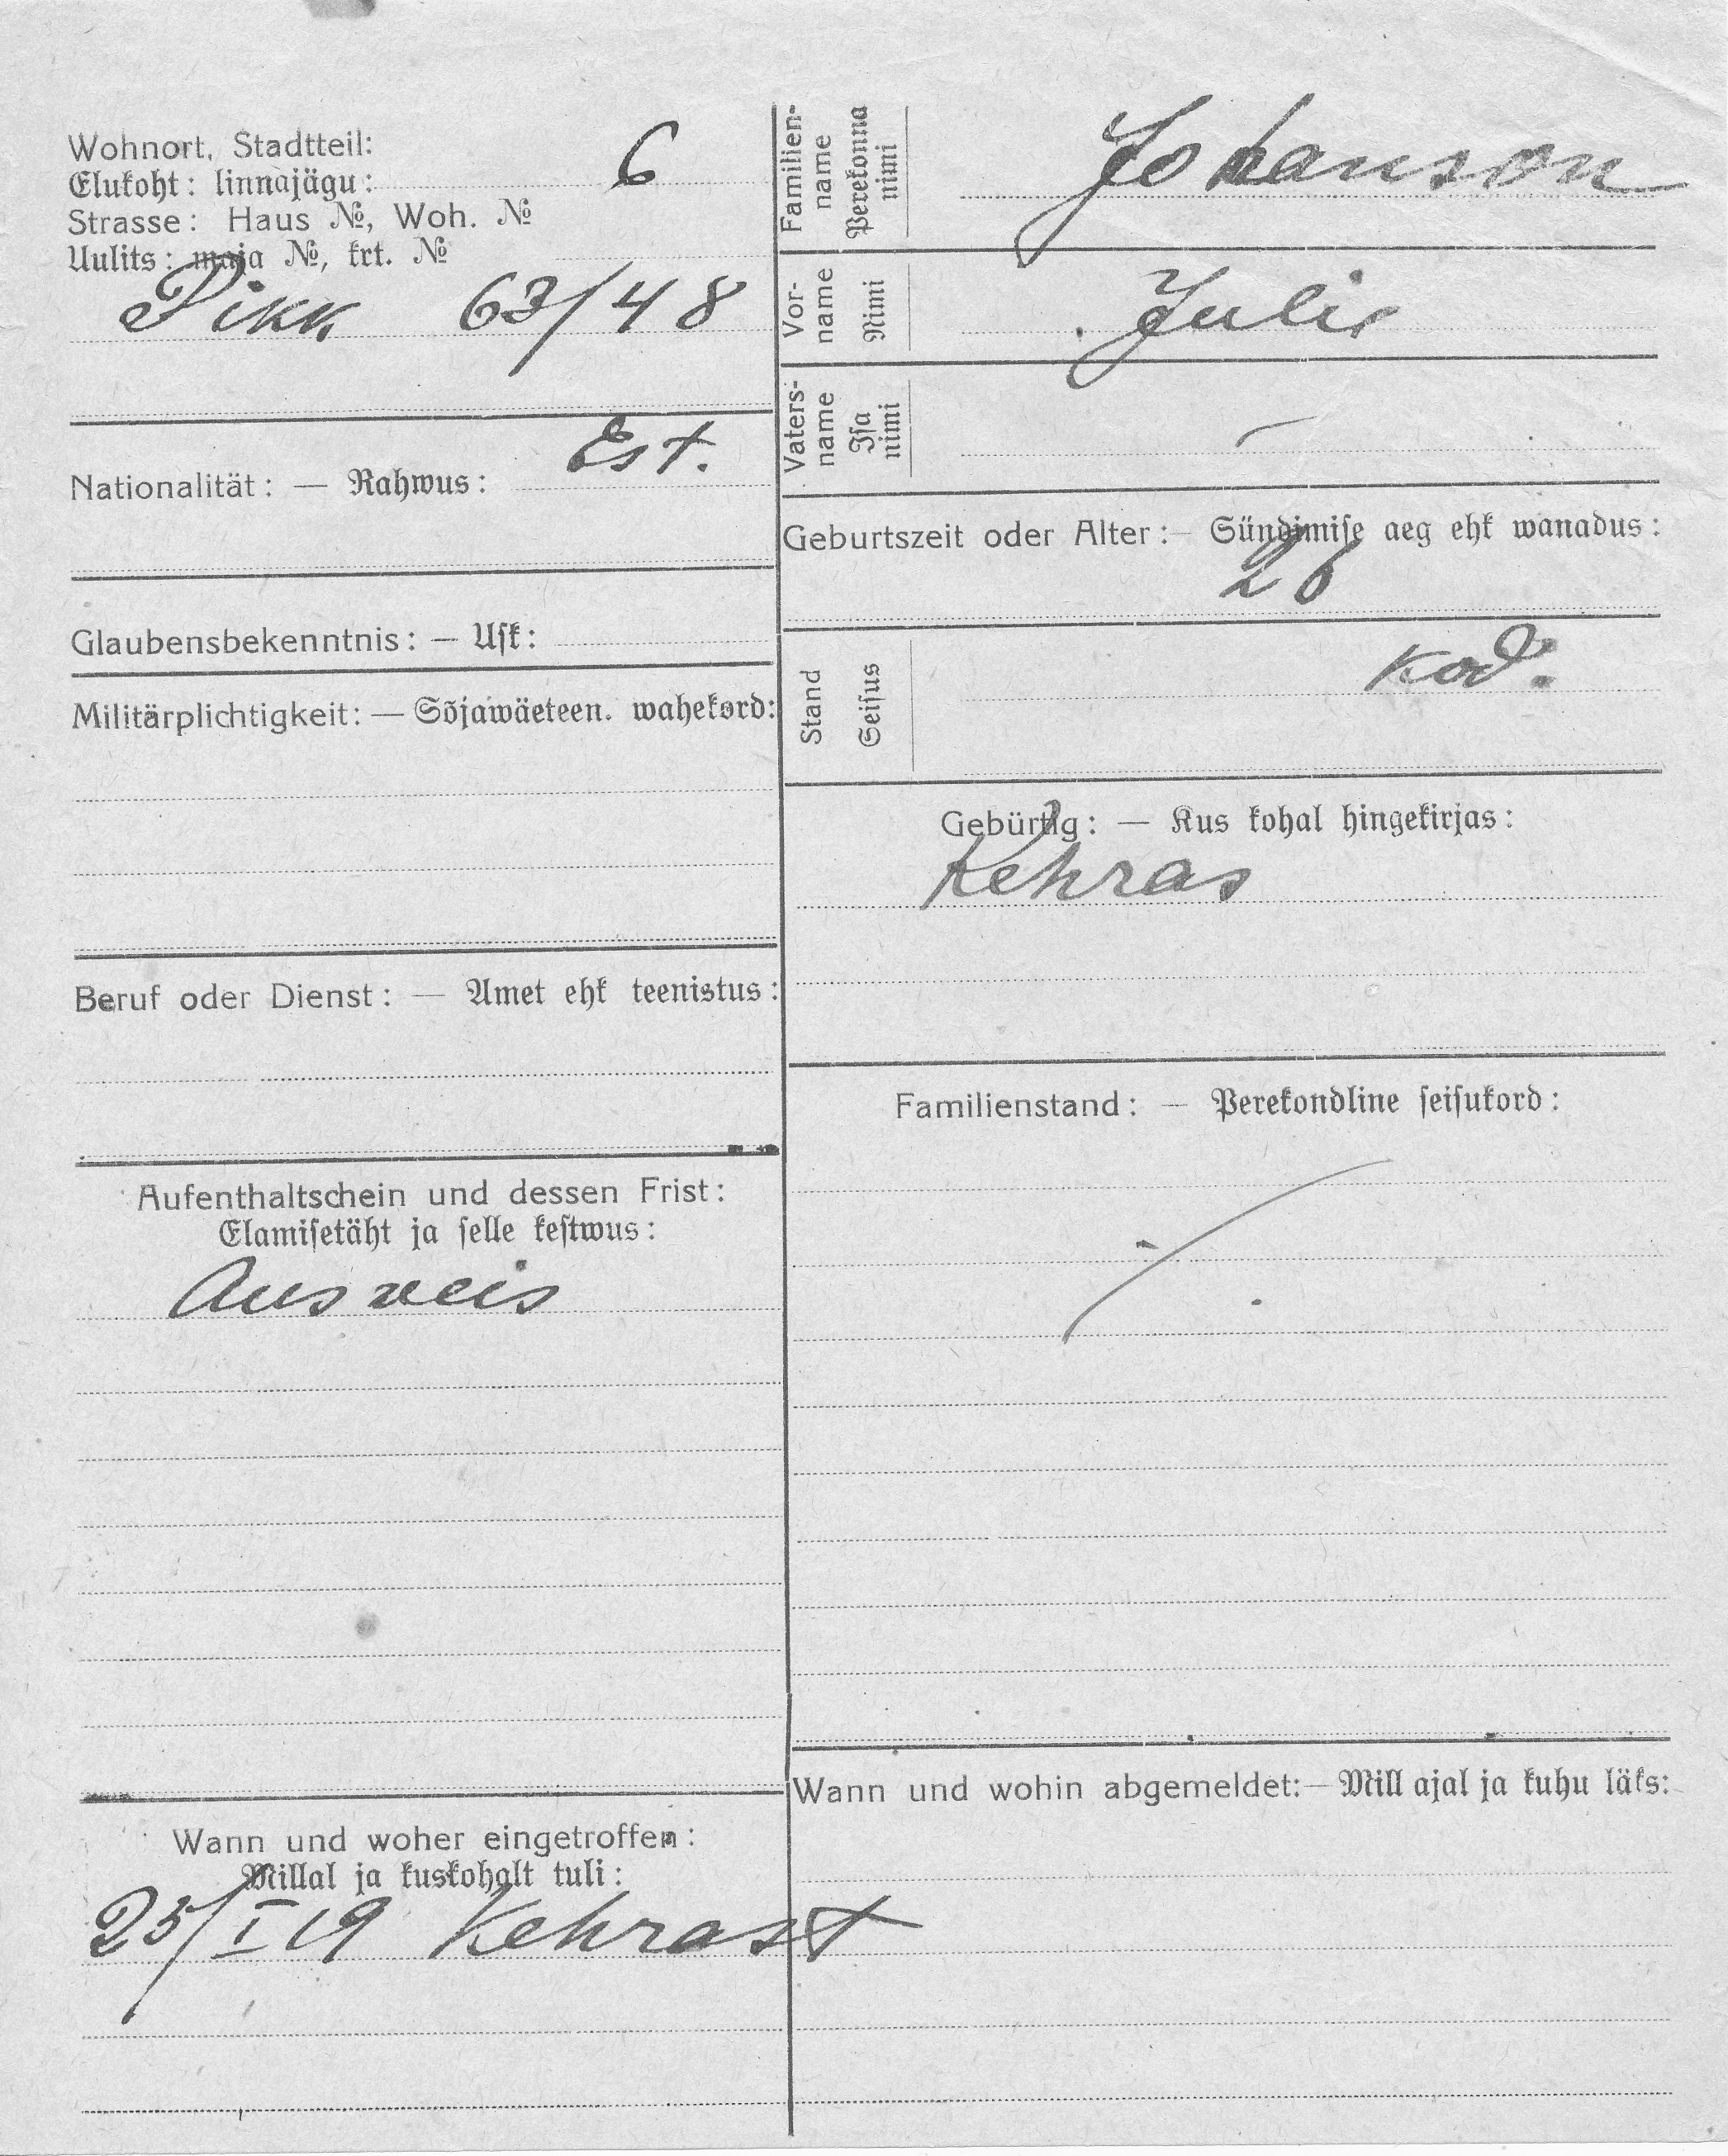 Wohnort, Stadtteil:
Elukoht: linnajägu: 6
Strasse: Haus №, Woh. №
Uulits: maja №, krt. №
Pikk 63/48
Nationalität: — Rahwus: Est.
Glaubensbekenntnis: — Usk:
Militärplichtigkeit: — Sõjawäeteen. wahekord:
Beruf oder Dienst: — Amet ehk teenistus:
Aufenthaltschein und dessen Frist:
Elamisetäht ja selle kestwus:
Ausweis
Wann und woher eingetroffen:
Millal ja kuskohalt tuli:
25/I 19 Kehrast
Familien-
name
Perekonna
nimi
Johanson
Vor-
name
Nimi
Julie
Vaters-
name
Isa
nimi
—
Geburtszeit oder Alter: — Sündimise aeg ehk wanadus:
26
Stand
Seisus
kod.
Gebürtig: — Kus kohal hingekirjas:
Kehras
Familienstand: — Perekondline seisukord:
Wann und wohin abgemeldet: — Mill ajal ja kuhu läks: